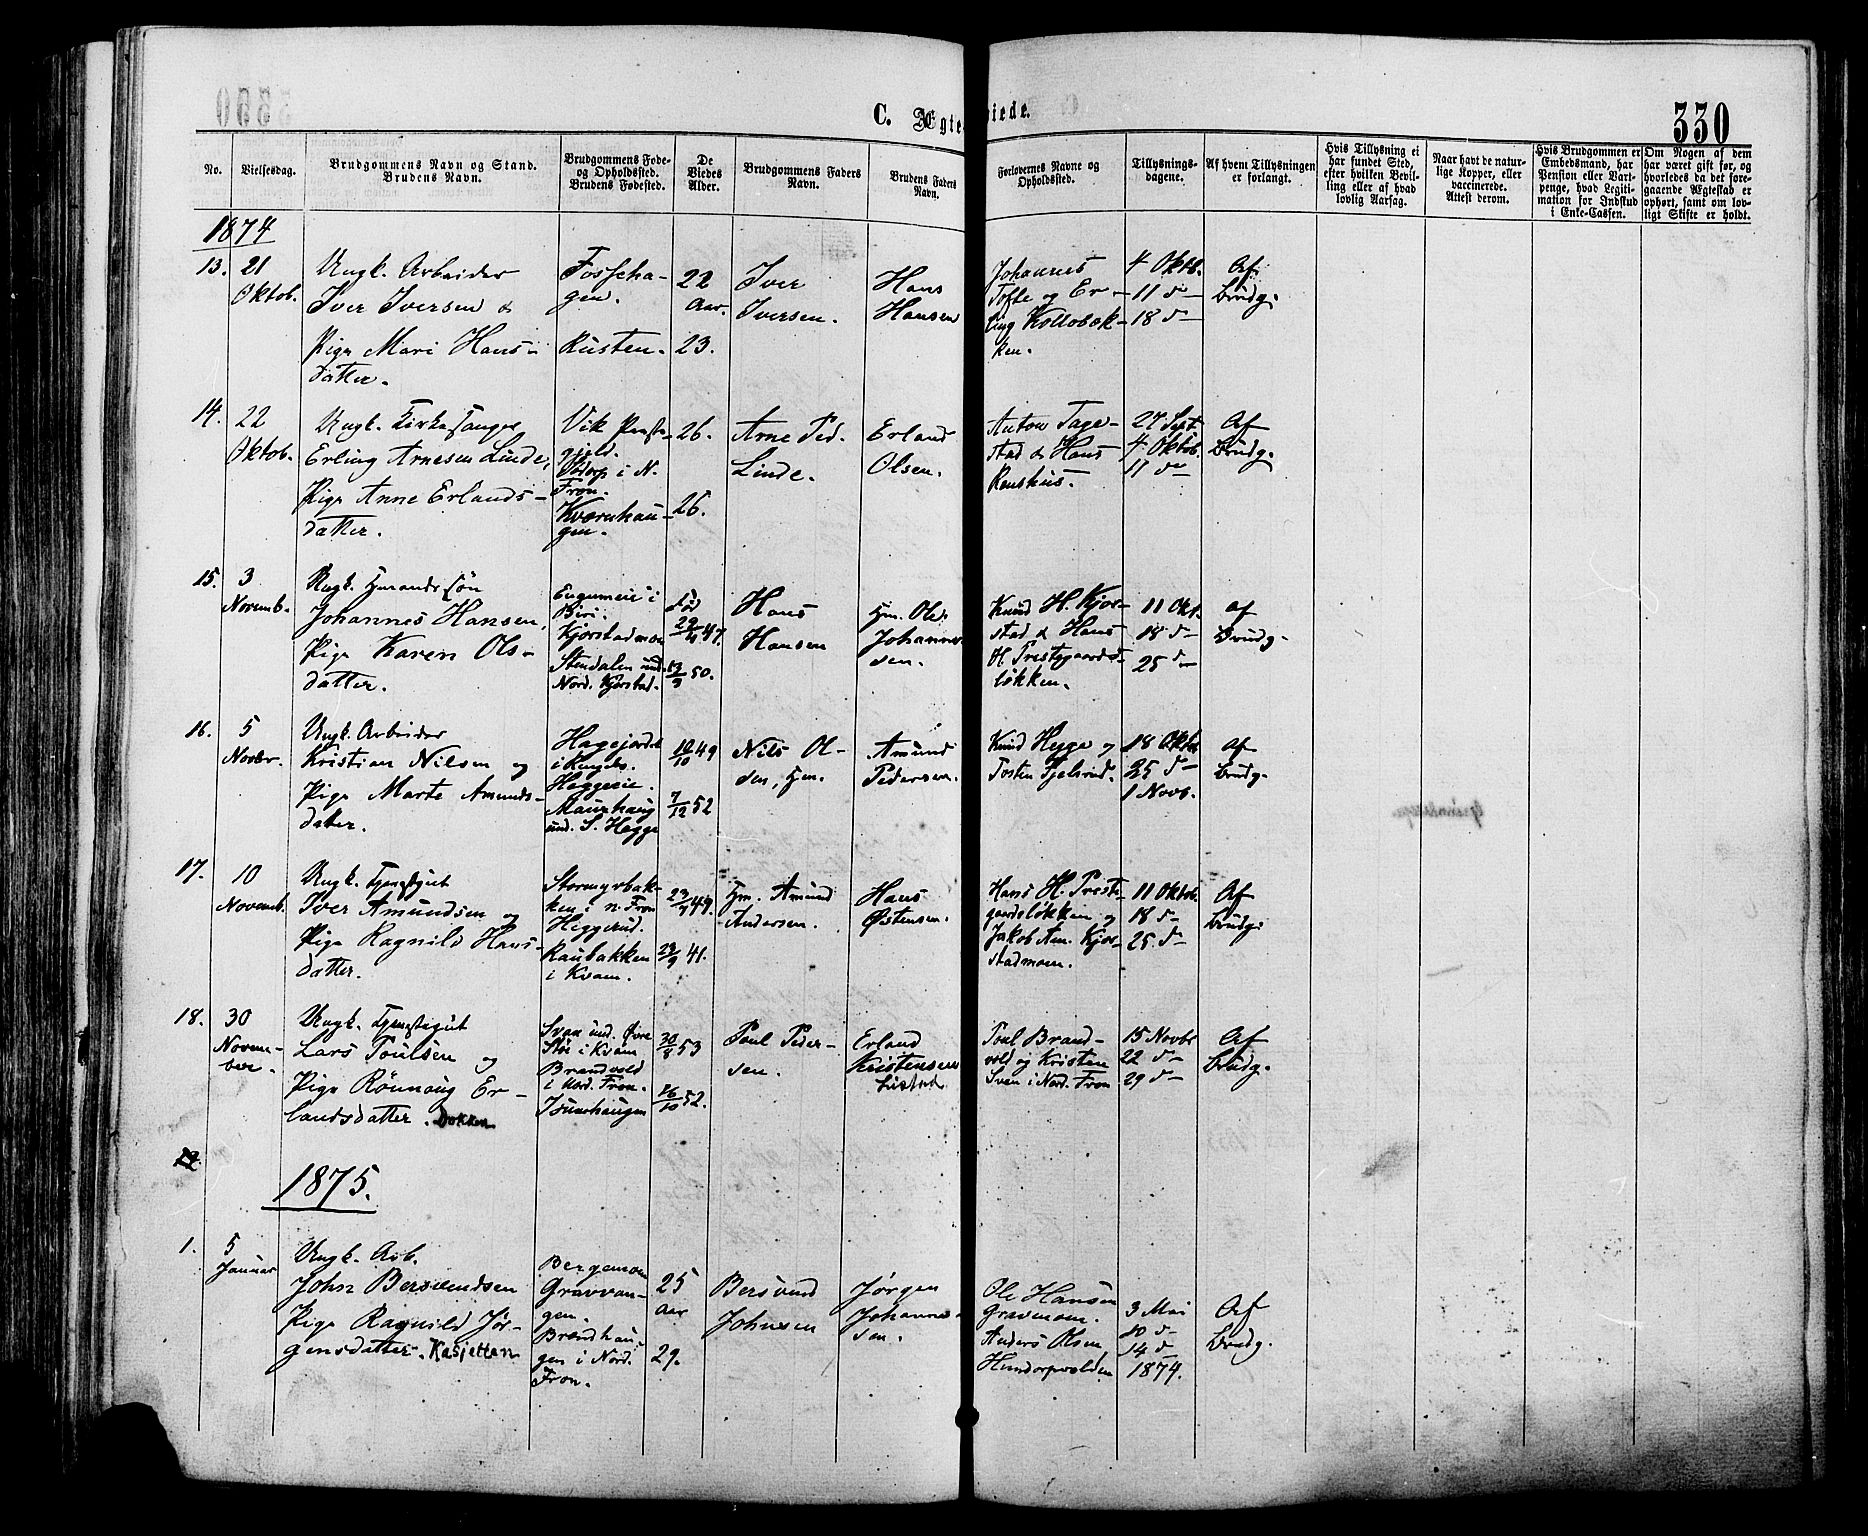 C. Ægteviede.
330
No.
Vielsesdag.
Brudgommens Navn og Stand.
Brudens Navn.
Brudgommens Føde-
og Opholdssted.
Brudens Fødested.
De
Viedes
Alder.
Brudgommens Faders
Navn.
Brudens Faders
Navn.
Forlovernes Navne og
Opholdssted.
Tillysnings-
dagene.
Af hvem Tillysningen
er forlangt.
Hvis Tillysning ei
har fundet Sted,
efter hvilken Bevil-
ling eller af hvad
lovlig Aarsag.
Naar havt de natur-
lige Kopper, eller
vaccinerede.
Attest derom.
Hvis Brudgommen er
Embedsmand, har
Pension eller Vart-
penge, hvad Legiti-
mation for Indskud
i Enke-Cassen.
Om Nogen af dem
har været gift før, og
hvorledes da det fore-
gaaende Ægteskab er
ophørt, samt om lov-
ligt Skifte er holdt.
1874
13.
21
Oktob.
Ungk. Arbeider
Iver Iversen &
Pige Mari Hans-
datter.
Fosseha-
gen.
Rusten.
22
Aar.
23.
Iver
Iversen.
Hans
Hansen
Johannes
Tofte og Er-
ling Kollobæk-
ken.
4 Oktb.
11 d-
18 d-
Af
Brudg.
14.
22
Oktob.
Ungk. Kirkesanger
Erling Arnesen Linde,
Pige Anne Erlands-
datter.
Vik Præste-
gjeld.
Sødorp i N.
Fron.
Kværnhau-
gen.
26.
26.
Arne Ped.
Linde.
Erland
Olsen.
Anton Tage-
stad & Hans
Rønshus.
27 Sept.
4 Oktob.
11 d-
Af
Brudg.
15.
3
Novemb.
Ungk. Gmandssøn
Johannes Hansen,
Pige Karen Ols-
datter.
Biri.
Kjørstadmoen
Stendalen und.
Nord. Kjørstad.
Fød
29/4 47.
13/3 50.
Hans
Hansen
Gm. Ole
Johanne-
sen.
Knud H. Kjør-
stad & Hans
H. Prestegaards-
løkken.
11 Okt.
18 d-
25 d-
Af
Brudg.
16.
5
Novbr.
Ungk. Arbeider
Kristian Nilsen og
Pige Marte Amunds-
datter.
Hagejordet
i Ringebo.
Heggeeie.
Maurhaug
und. S. Hegge
10/10 49
7/12 52
Nils Ol-
sen, Gm.
Amund
Pedersen.
Knud Hegge og
Tosten Fjelsrud.
18 Oktob.
25 d-
1 Novb.
Af
Brudg.
17.
10
Novemb.
Ungk. Tjenestgut
Iver Amundsen og
Pige Ragnild Hans-
datter.
Stormyrbak-
ken i N. Fron
Heggerud.
Raubakken
i Kvam.
23/7 49.
23/9 41.
Gm. Amund
Andersen.
Hans
Østensen.
Hans H. Preste-
gaardsløkken og
Jakob Am. Kjør-
stadmoen.
11 Oktob.
18 d-
25 d-
Af
Brudg.
18.
30
Novem-
ber.
Ungk. Tjenestegut
Lars Poulsen og
Pige Rønnaug Er-
landsdatter. Bakken
Sveen und. Øvre
Stee i Kvam
Brandvold
i Nord. Fron.
Isumhaugen
30/8 53
16/10 52.
Poul Peder-
sen.
Erland
Kristensen
Listad.
Poul Brand-
vold og Kristen
Sven i Nord. Fron
15 Novbr
22 d-
29 d-
Af
Brudg.
1875.
1.
5
Januar
Ungk. Arb.
John Bersvendsen
Pige Ragnild Jør-
gensdatter. Kasjetten
Bergemoen
Gravvan-
gen.
Brandhau-
gen i Nord.
Fron.
25
Aar
29.
Bersvend
Johnsen
Jørgen
Johanne-
sen.
Ole Hansen
Gravmoen.
Anders Olsen
Hundorpvolden
3 Mai
10 d-
14 d
1874.
Af
Brudg.